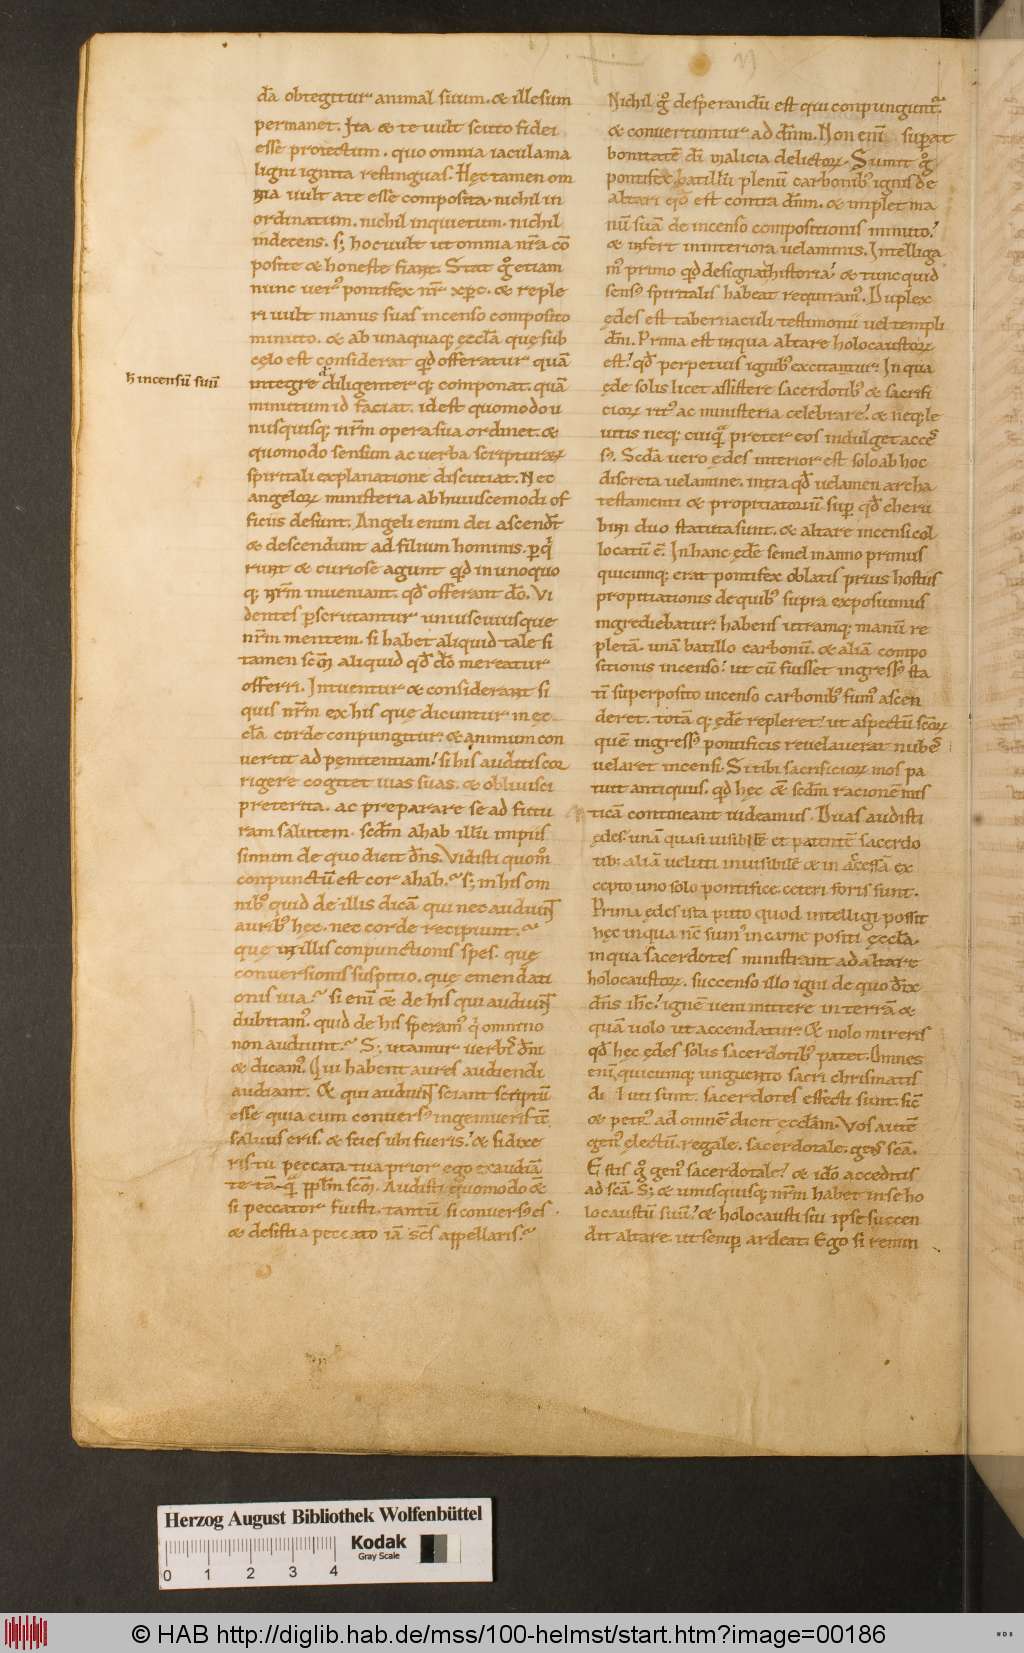 dā obtegitur animal suum. & illesum
permanet. Ita & te uult scuto fidei
esse protectum. quo omnia iacula ma
ligni ignita restinguas. Hęc tamen om
nia uult a te esse composita. nichil in
ordinatum. nichil inquietum. nichil
indecens. s; hoc uult ut omnia nr̄a cō
posite & honeste fiant. Stat g̊ etiam
nunc uerꝰ pontifex nr̄ xp̄c. & reple
ri uult manus suas incenso composito
minuto. & ab unaquaq; ęcclā quę sub
cęlo est considerat qd̄ offeratur quā
h̄ incensū suū
integre a diligenter q; componat. quā
minutum id faciat. id est quomodo u
nusquisq; nr̄m opera sua ordinet. &
quomodo sensum ac uerba scripturaꝝ
spiritali explanatione discutiat. Nec
angeloꝝ ministeria ab huiuscemodi of
ficiis desunt. Angeli enim dei ascendt̄
& descendunt ad filium hominis. ꝑq̇
runt & curiose agunt qd̄ in unoquo
q; nr̄m inueniant. qd̄ offerant dō. Vi
dentes ꝑscrutantur uniuscuiusque
nr̄m mentem. si habet aliquid tale si
tamen scm̄ aliquid qd̄ dō mereatur
offerri. Intuentur & considerant si
quis nr̄m ex his quę dicuntur in ęc
clā corde conpungitur. & animum con
uertit ad penitentiam. si his auditis cor
rigere cogitet uias suas. & obliuisci
preterita. ac preparare se ad futu
ram salutem. scdm̄ ahab illū impiis
simum de quo dicit dn̄s. Vidisti quom̊
conpunctū est cor ahab. s; in his om
nibꝰ quid de illis dicā qui nec audiunt
auribꝰ hęc. nec corde recipiunt.
quę in illis conpunctionis spes. quę
conuersionis suspitio. quę emendati
onis uia. si enī cē de his qui audiunt
dubitamꝰ. quid de his speramꝰ q̇ omnino
non audiunt. S; utamur uerbis dn̄i
& dicamꝰ. Qui habent aures audiendi
audiant. & qui audiunt sciant scriptū
esse quia cum conuersꝰ ingemueris tc̄
saluus eris. & scies ubi fueris. & si dixe
ris tu peccata tua prior ego exaudiā
te tāquā pplm̄ scm̄. Audisti quomodo cē
si peccator fuisti. tantū si conuersꝰ es
& desisti a peccato iā scs̄ appellaris.
Nichil g̊ desperandū est qui conpunguntur
& conuertuntur ad dn̄m. Non enī suꝑat
bonitatē dī malicia delictoꝝ. Sumit g̊
pontifex batillū plenū carbonibꝰ ignis de
altari qd̄ est contra dn̄m. & implet ma
nū suā de incenso compositionis minuto.
& infert in interiora uelaminis. Intelliga
mꝰ primo qd̄ designat historia. & tunc quid
sensꝰ spiritalis habeat requiramꝰ. Duplex
ędes est tabernaculi testimonii uel templi
dn̄i. Prima est in qua altare holocaustoꝝ
est. qd̄ perpetuis ignibꝰ excitatur. In qua
ęde solis licet assistere sacerdotibꝰ & sacrifi
cioꝝ ritꝰ ac ministeria celebrare. & neq; le
uitis neq; cuiquā preter eos indulget acces
sꝰ. Scdā uero ędes interior est solo ab hoc
discreta uelamine. intra qd̄ uelamen archa
testamenti & propitiatoriū suꝑ qd̄ cheru
bim duo statuta sunt. & altare incensi col
locatū ē. In hanc ędē semel in anno primus
quicumq; erat pontifex oblatis prius hostiis
propitiationis de quibꝰ supra exposuimus
ingrediebatur. habens utramq; manū re
pletā. unā batillo carbonū. & aliā compo
sitionis incenso. ut cū fuisset ingressꝰ sta
tī superposito incenso carbonibꝰ fumꝰ ascen
deret. totā q; ędē repleret. ut aspectū scōꝝ
quē ingressꝰ pontificis reuelauerat nubes
uelaret incensi. Si tibi sacrificioꝝ mos pa
tuit antiquus. qd̄ hęc cē scdm̄ racionē mis
ticā contineant uideamus. Duas audisti
ędes. unā quasi uisibilē et patentē sacerdo
tibꝰ. aliā ueluti inuisibilē & inaccessā ex
cepto uno solo pontifice. ceteri foris sunt.
Prima ędes ista puto quod intelligi possit
hęc in qua nc̄ sumꝰ in carne positi ęccla.
in qua sacerdotes ministrant ad altare
holocaustoꝝ. succenso illo igni de quo dix̄
dn̄s ih̄c. ignē ueni mittere in terrā &
quā uolo ut accendatur. & nolo mireris
qd̄ hęc ędes solis sacerdotibꝰ patet. Omnes
enī quicumq; unguento sacri chrismatis
dilliti sunt. sacerdotes effecti sunt. sic̄
& petrꝰ ad omnē dicit ęcclam. Vos autē
genꝰ electū. regale. sacerdotale. gens scā.
Estis g̊ genꝰ sacerdotale. & idō acceditis
ad scā. S; & unusquisq; nr̄m habet in se ho
locaustū suū. & holocausti sui ipse succen
dit altare. ut semꝑ ardeat. Ego si renun
Herzog August Bibliothek Wolfenbüttel
Kodak
Gray Scale
0 1 2 3 4
© HAB http://diglib.hab.de/mss/100-helmst/start.htm?image=00186